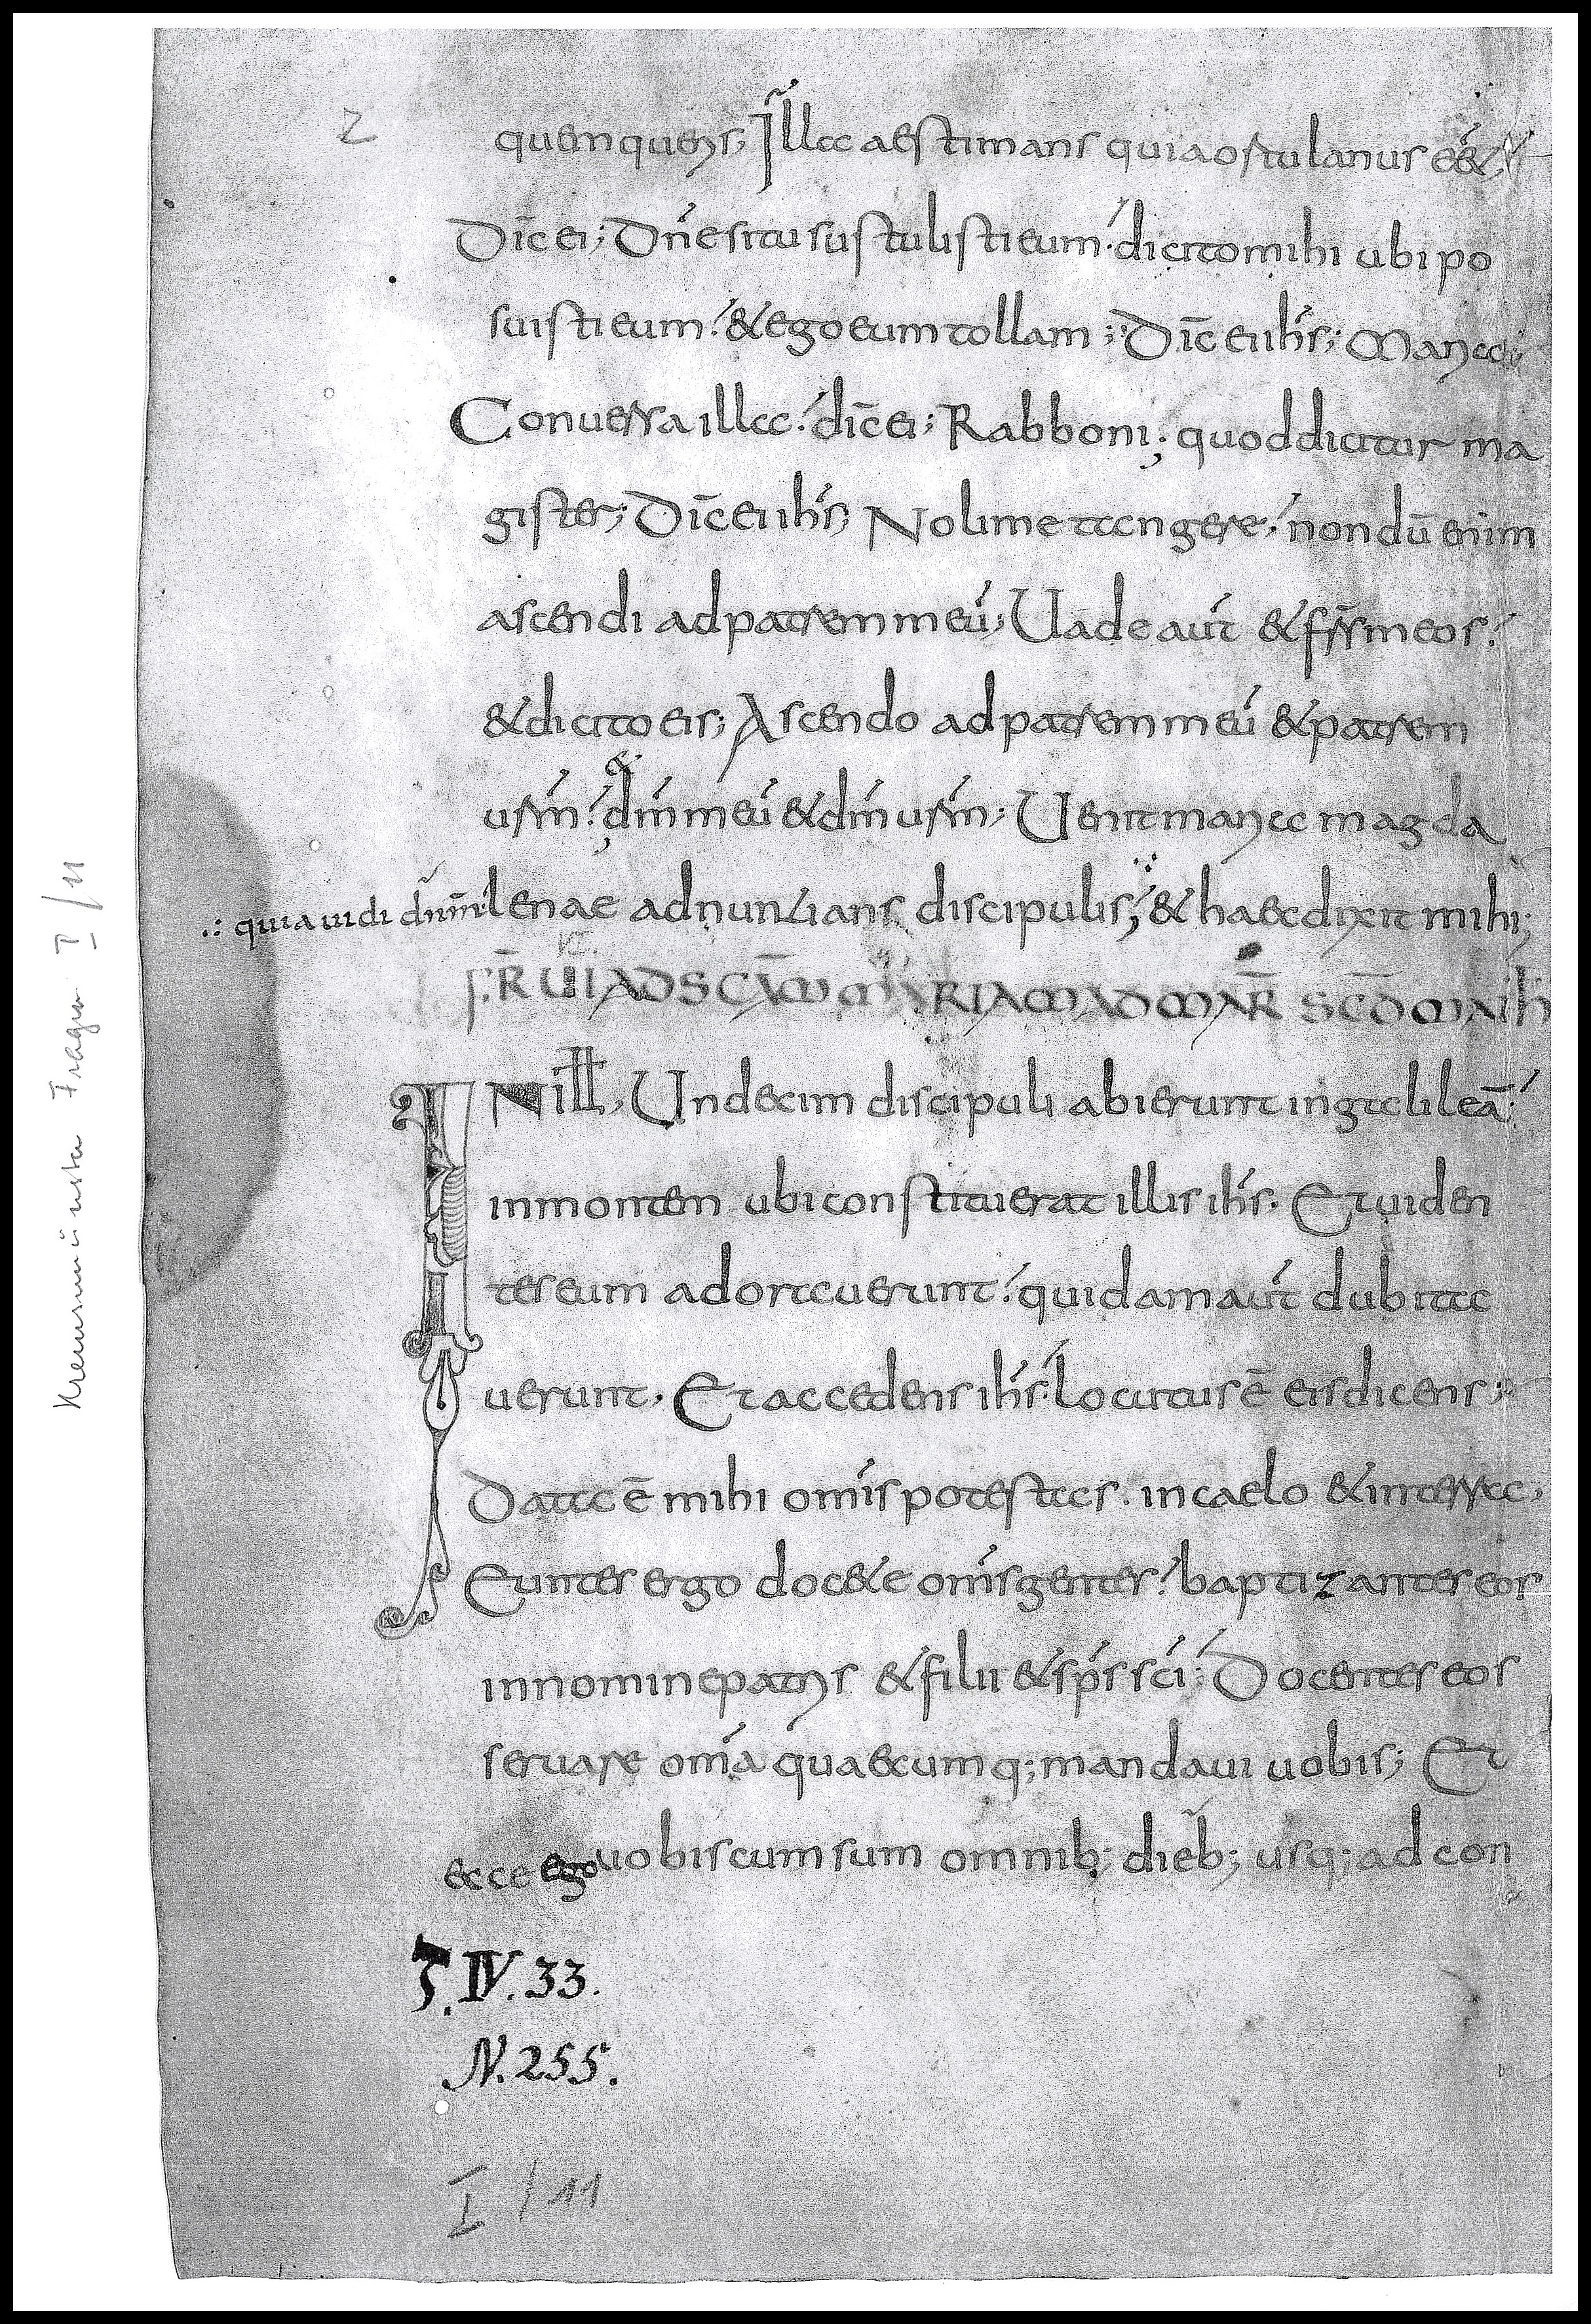 2
quem queris; Illa aestimans quia ortulanus eēt
Dic̄ ei; Dn̄e si tu sustulisti eum; dicito mihi ubi po
suisti eum; & ego eum tollam; Dic̄ ei ih̄s; Maria;
Conuersa illa; dic̄ ei; Rabboni; quod dicitur ma
gister; Dic̄ ei ih̄s; Noli me tangere; nondū enim
ascendi ad patrem meū; Uade aut̄ & fr̄s meos;
& dicito eis; Ascendo ad patrem meū & patrem
usr̄m; & dm̄ meū & dm̄ usr̄m; Uenit maria magda
lenae adnuntians discipulis; & haec dixit mihi;
.: quia uidi dn̄m
F̄R UI AD SCĀM MARIAM AD MAR̄ SCD̄ MATH
IN ill̄, Undecim discipuli abierunt in galileā;
in montem ubi constituerat illis ih̄s. Et uiden
tes eum adorauerunt; quidam aut̄ dubita
uerunt. Et accedens ih̄s; locutus ē eis dicens;
Data ē mihi om̄is potestas. in caelo & in terra,
Euntes ergo doc&e om̄s gentes; baptizantes eos
in nomine patris & filii & sp̄s sc̄i; Docentes eos
seruare om̄a quaecumq; mandaui uobis; Et
ecce ego uobiscum sum omnib; dieb; usq; ad con
T. IV. 33.
N. 255.
I / 11
Kremsmünster Fragm I / 11